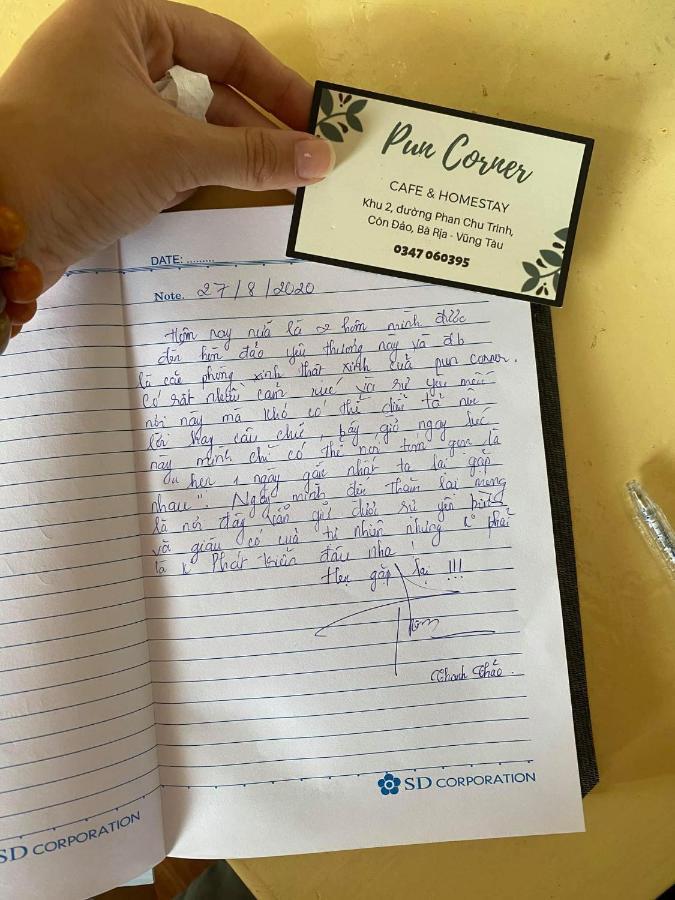 Pun Corner
CAFE & HOMESTAY
Khu 2, đường Phan Chu Trinh,
Côn Đảo, Bà Rịa - Vũng Tàu
0347 060395
DATE: .........
Note. 27/8/2020
Hôm nay nữa là 2 hôm mình được
đến hòn đảo yêu thương này và đb
là căn phòng xinh thật xinh của pun corner.
Có rất nhiều cảm xúc và sự yêu mến
nơi này mà khó có thể diễn tả nên
lời hay câu chữ, bây giờ ngay lúc
này mình chỉ có thể nói tóm gọn là
"Hẹn 1 ngày gần nhất ta lại gặp
nhau". Ngày mình đến thăm lại mong
là nơi đây vẫn giữ được sự yên bình
và giàu có của tự nhiên nhưng k phải
là k phát triển đâu nha!
Hẹn gặp lại !!!
Thanh Thảo.
SD CORPORATION
SD CORPORATION